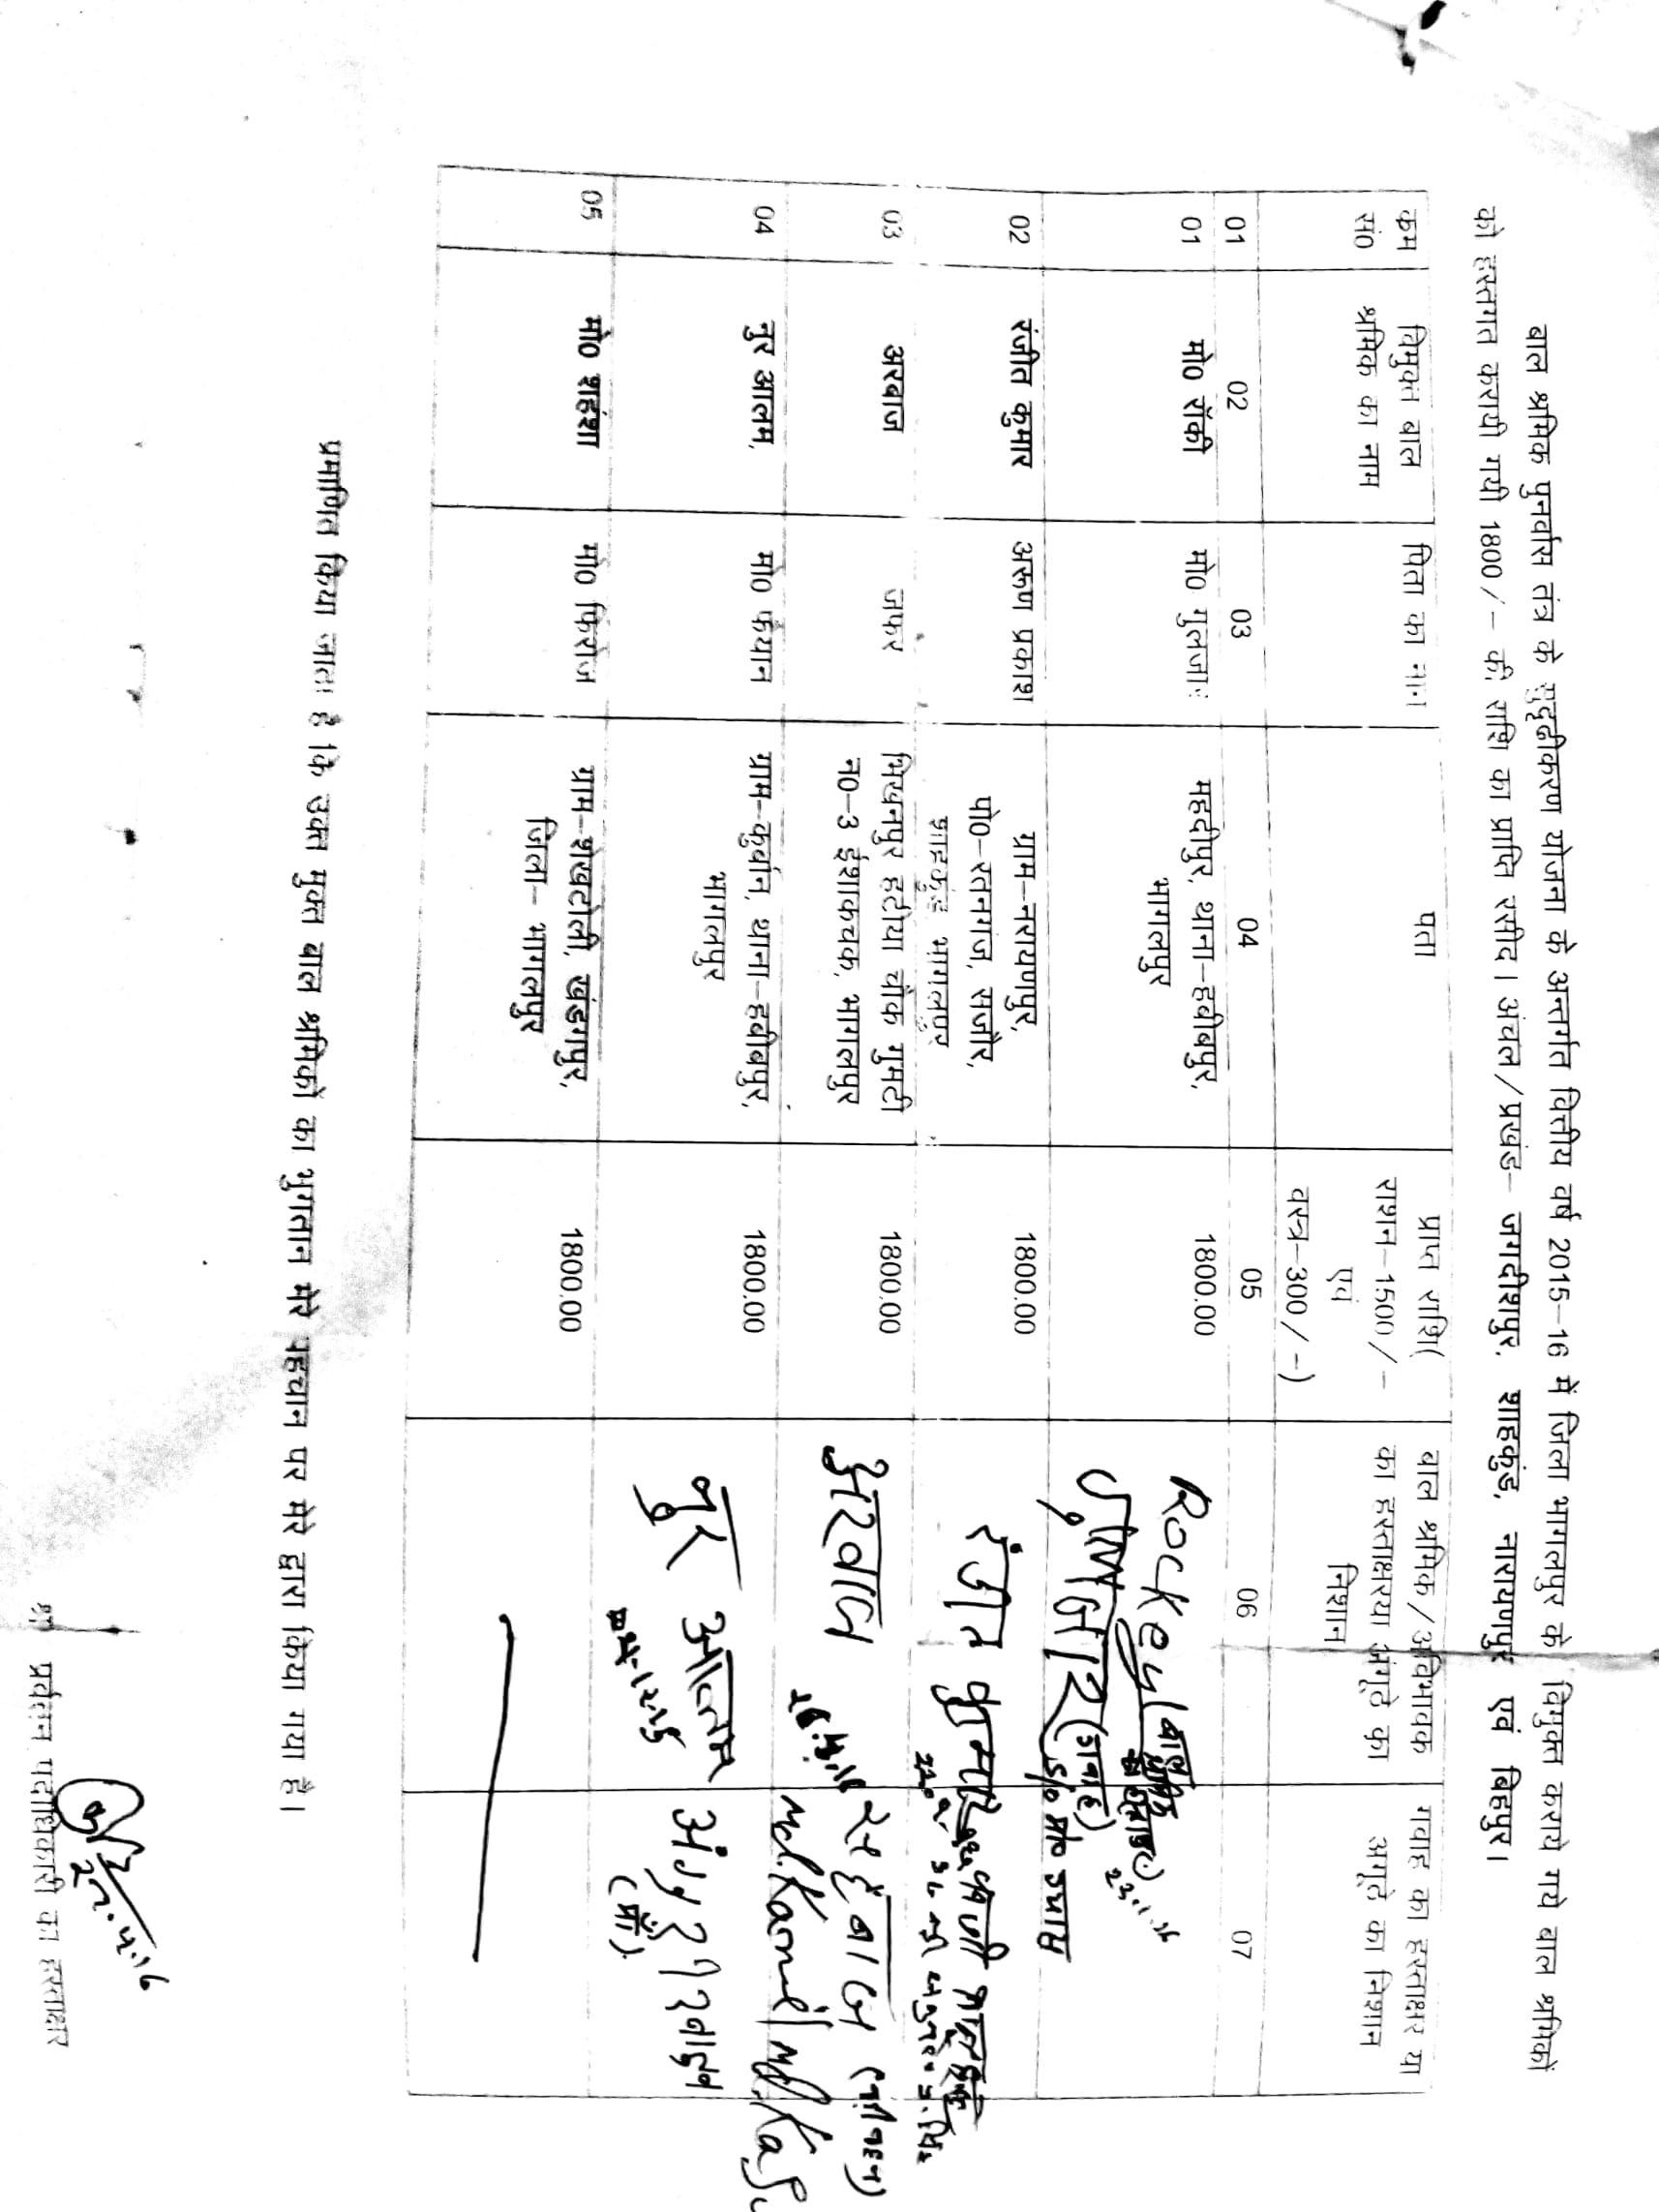 बाल श्रमिक पुनर्वास तंत्र के सुदृढीकरण योजना के अन्तर्गत वित्तीय वर्ष 2015–16 में जिला भागलपुर के विमुक्त कराये गये बाल श्रमिकों
को हस्तगत करायी गयी 1800/– की राशि का प्राप्ति रसीद। अंचल/प्रखंड– जगदीशपुर, शाहकुंड, नारायणपुर एवं बिहपुर।
कम सं0
विमुक्त बाल श्रमिक का नाम
पिता का नाम
पता
प्राप्त राशि( राशन–1500/– एवं वस्त्र–300/–)
बाल श्रमिक/अविभावक का हस्ताक्षरया अंगूठे का निशान
गवाह का हस्ताक्षर या अगूठे का निशान
01 02 03 04 05 06 07
01 मो0 रॉकी मो0 गुलजार महदीपुर, थाना–हबीबपुर, 1800.00
भागलपुर
Rockey
गुलजार
23.11.15
02 रंजीत कुमार अरूण प्रकाश ग्राम–नरायणपुर, 1800.00
पो0–रतनगंज, सजौर,
शाहकुंड भागलपुर
रंजीत कुमार
03 अरबाज जफर भिखनपुर हटीया चौक गुमटी 1800.00
न0–3 ईशाकचक, भागलपुर
अरबाज
04 नुर आलम, मो0 फेयान ग्राम–कुर्बान, थाना–हबीबपुर, 1800.00
भागलपुर
नुर आलम
Md. Kamil
05 मो0 शहंशा मो0 फिरोज ग्राम–शेखटोली, खंडगपुर, 1800.00
जिला– भागलपुर
प्रमाणित किया जाता है कि उक्त मुक्त बाल श्रमिकों का भुगतान मेरे पहचान पर मेरे द्वारा किया गया है।
श्रम प्रर्वतन पदाधिकारी का हस्ताक्षर